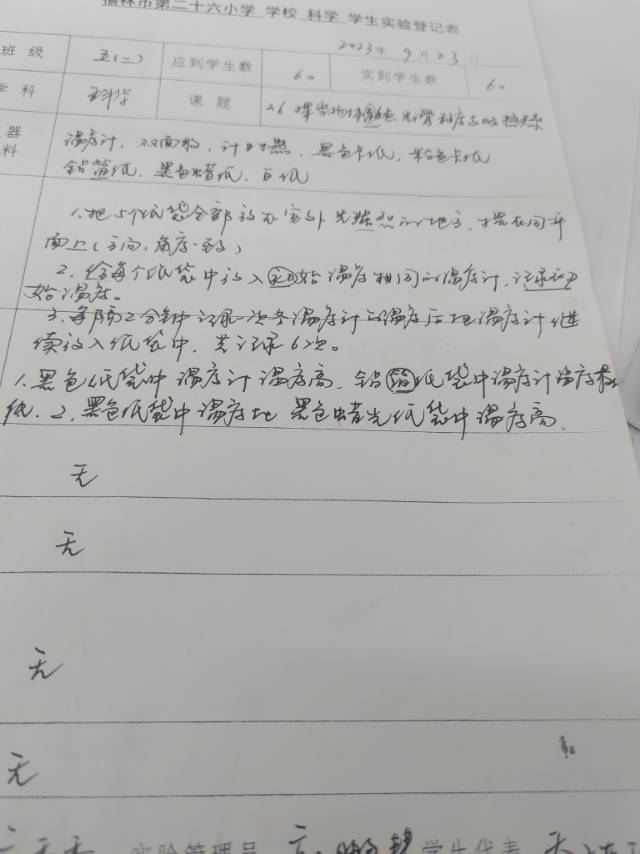 榆林市第二十六小学 学校 科学 学生实验登记表
2023年 9月23日
班级 五(二) 应到学生数 60 实到学生数 60
学科 科学 课题 26 探究物体颜色、光滑程度与吸热关系
器 温度计、双面胶、计时器、黑色卡纸、粉色卡纸
料 铝箔纸、黑色蜡纸、白纸
1.把5个纸袋全部放在室外光照的地方,摆在同平
面上(方向,角度一致)
2.给每个纸袋中放入起始温度相同的温度计,记录起
始温度。
3.每隔2分钟记录一次各温度计的温度后把温度计继
续放入纸袋中,共记录6次。
1.黑色纸袋中温度计温度高,铝箔纸袋中温度计温度最
低.2.黑色纸袋中温度比黑色蜡光纸袋中温度高.
无
无
无
无
实验管理员 学生代表